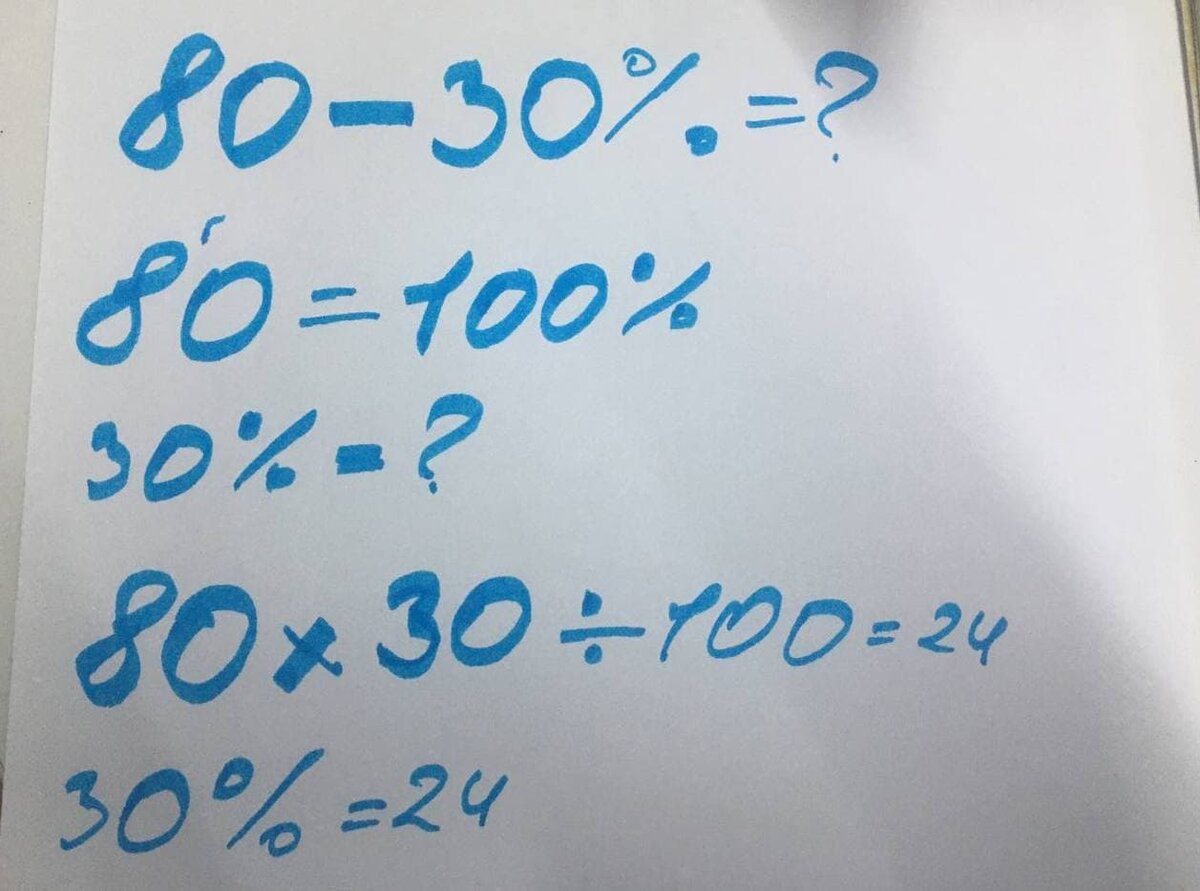 80-30%.=?
80=100%
30%-?
80×30÷100=24
30%=24